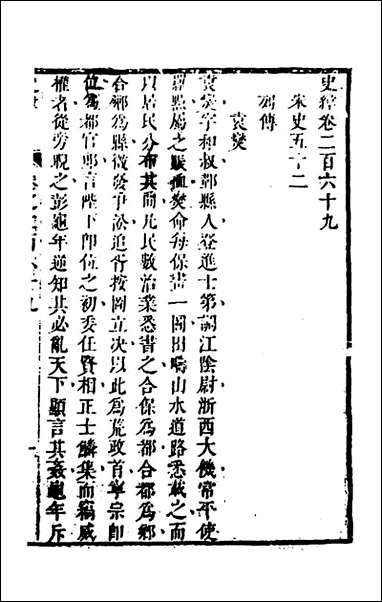 史緯卷二百六十九
宋史五十二
列傳
袁燮
袁燮字和叔鄞縣人登進士第調江陰尉浙西大饑常平使
羅點屬之賑恤燮命每保畫一圖田疇山水道路悉載之而
以居民分布其間凡民數治業悉書之合保為都合都為鄉
合鄉為縣徵發爭訟追胥按圖立決以此為荒政首寧宗即
位為都官郎言陛下即位之初委任賢相正士鱗集而竊威
權者從旁睨之彭龜年逆知其必亂天下顯言其姦龜年斥